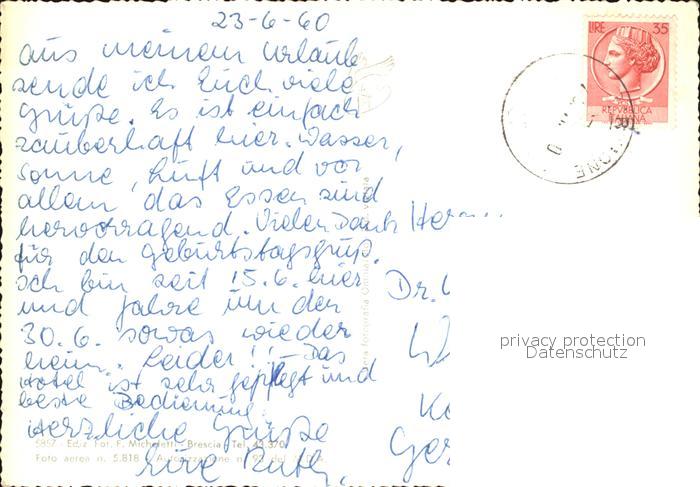 23-6-60
aus meinem Urlaub
sende ich Euch viele
Grüße. Es ist einfach
zauberhaft hier. Wasser,
Sonne, Luft und vor
allem das Essen sind
hervorragend. Vielen Dank
für den Geburtstagsgruß.
Ich bin seit 15.6. hier
und fahre um den
30.6. wieder
heim. Leider!! - Das
Hotel ist sehr gepflegt und
beste Bedienung.
Herzliche Grüße
Eure Ruth
Herrn
Dr.
Ger
LIRE 35
REPUBBLICA
ITALIANA
privacy protection
Datenschutz
5857 - Ediz. Fot. F. Micheletti - Brescia - Tel. 43.370
Foto aerea n. 5.818 - Autorizzazione n.